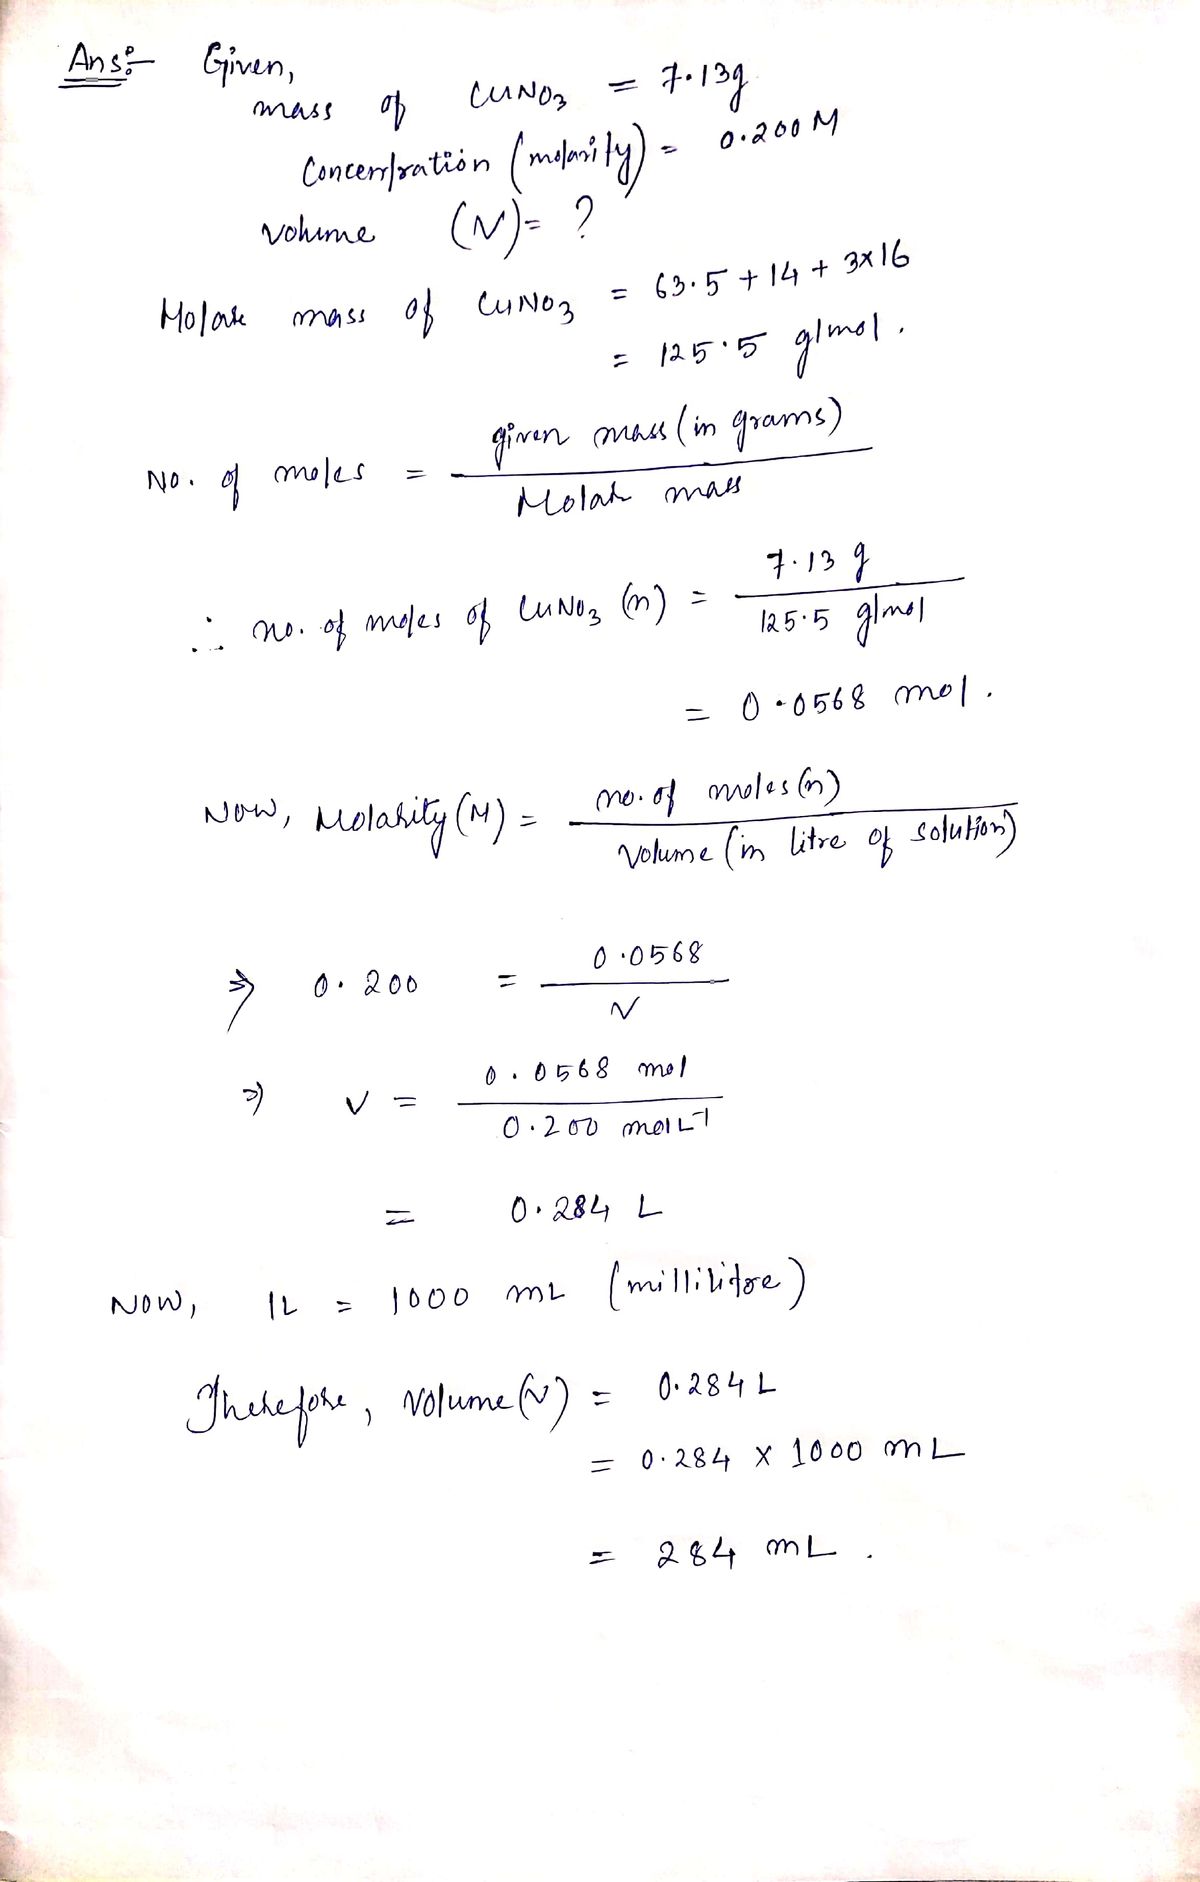 Ans:- Given,
mass of CuNO3 = 7.13g
Concentration (molarity) = 0.200 M
volume (V) = ?
Molar mass of CuNO3 = 63.5 + 14 + 3x16
= 125.5 g/mol.
No. of moles = given mass (in grams) / Molar mass
∴ no. of moles of CuNO3 (n) = 7.13 g / 125.5 g/mol
= 0.0568 mol.
Now, Molarity (M) = no. of moles (n) / Volume (in litre of solution)
⇒ 0.200 = 0.0568 / V
⇒ V = 0.0568 mol / 0.200 mol L-1
= 0.284 L
Now, 1L = 1000 mL (millilitre)
Therefore, Volume (V) = 0.284 L
= 0.284 x 1000 mL
= 284 mL.